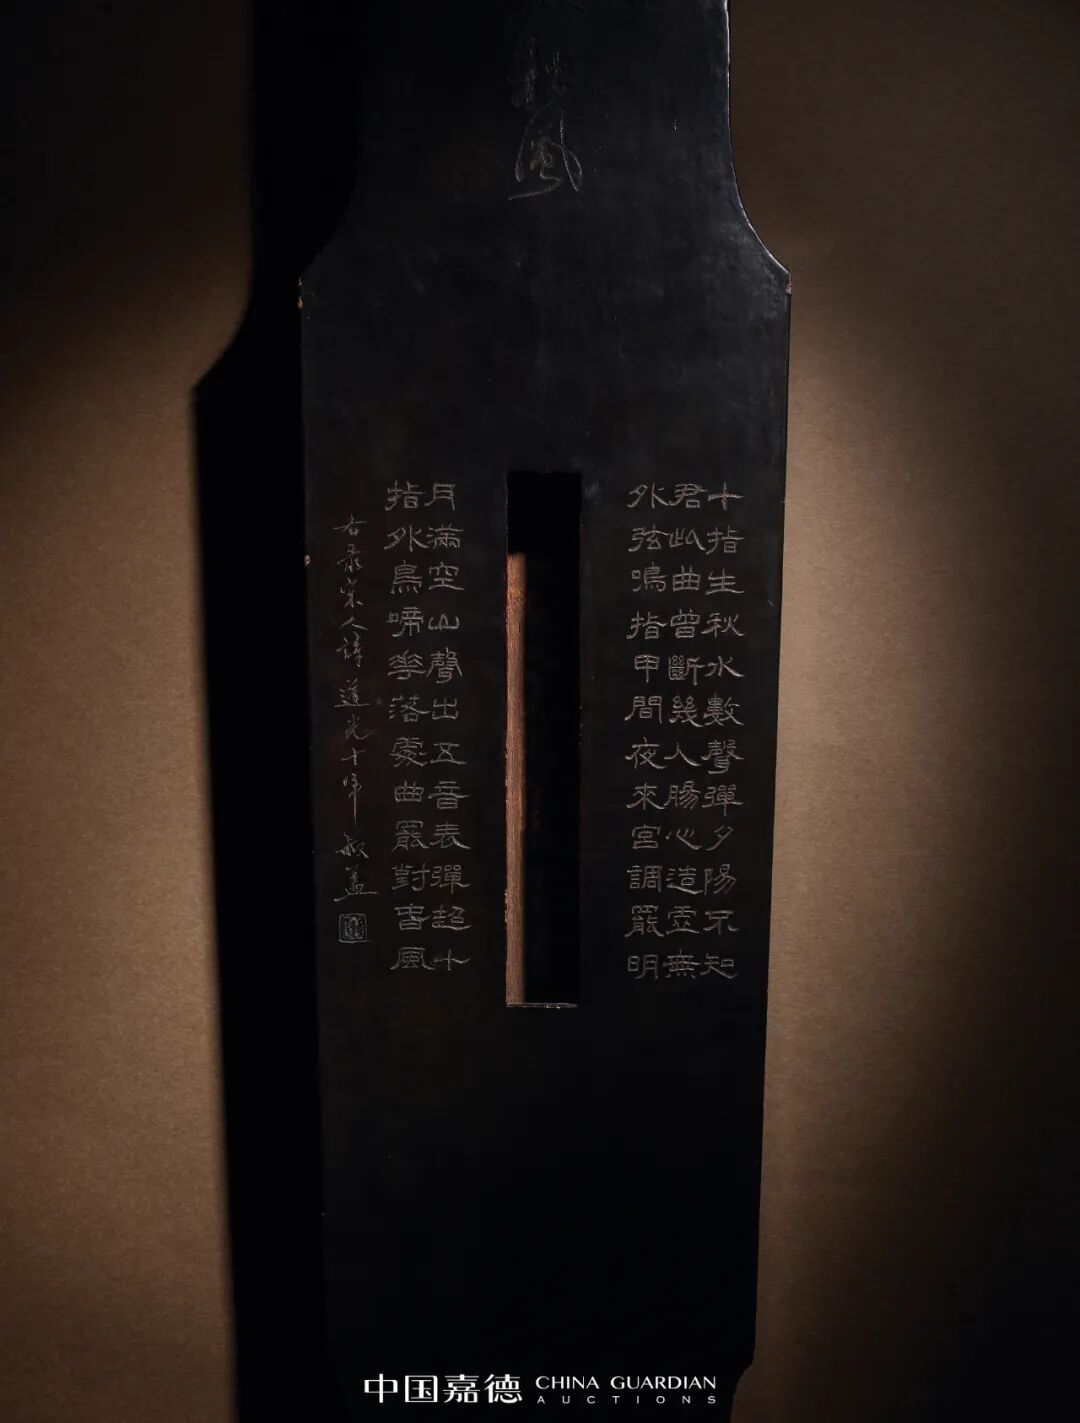 風
十指生秋水數聲彈夕陽不知
君此曲曾斷幾人腸心造虛無
外弦鳴指甲間夜來宮調罷明
月滿空山聲出五音表彈超十
指外鳥啼華落處曲罷對春風
右录宋人詩 道光十年 叔蓋
中国嘉德 CHINA GUARDIAN
AUCTIONS